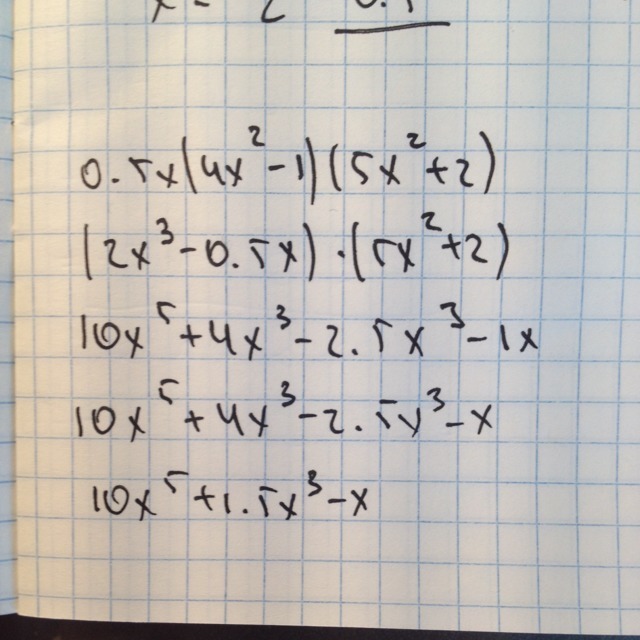 0.5x(4x²-1)(5x²+2)
(2x³-0.5x)·(5x²+2)
10x⁵+4x³-2.5x³-1x
10x⁵+4x³-2.5x³-x
10x⁵+1.5x³-x